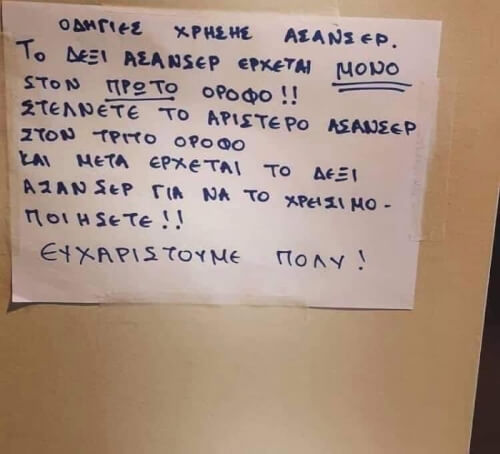 ΟΔΗΓΙΕΣ ΧΡΗΣΗΣ ΑΣΑΝΣΕΡ.
ΤΟ ΔΕΞΙ ΑΣΑΝΣΕΡ ΕΡΧΕΤΑΙ ΜΟΝΟ
ΣΤΟΝ ΠΡΩΤΟ ΟΡΟΦΟ!!
ΣΤΕΛΝΕΤΕ ΤΟ ΑΡΙΣΤΕΡΟ ΑΣΑΝΣΕΡ
ΣΤΟΝ ΤΡΙΤΟ ΟΡΟΦΟ
ΚΑΙ ΜΕΤΑ ΕΡΧΕΤΑΙ ΤΟ ΔΕΞΙ
ΑΣΑΝΣΕΡ ΓΙΑ ΝΑ ΤΟ ΧΡΕΙΣΙΜΟ-
ΠΟΙΗΣΕΤΕ!!
ΕΥΧΑΡΙΣΤΟΥΜΕ ΠΟΛΥ!